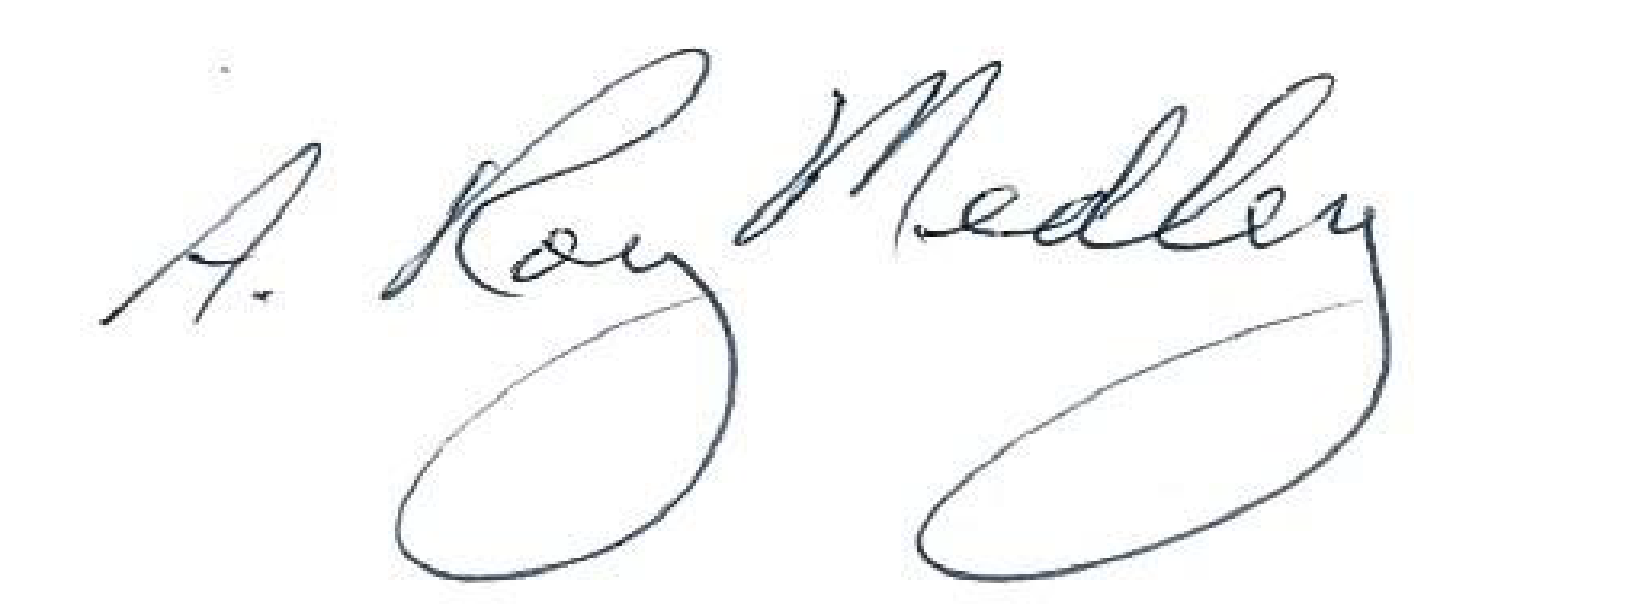 A. Roy Medley